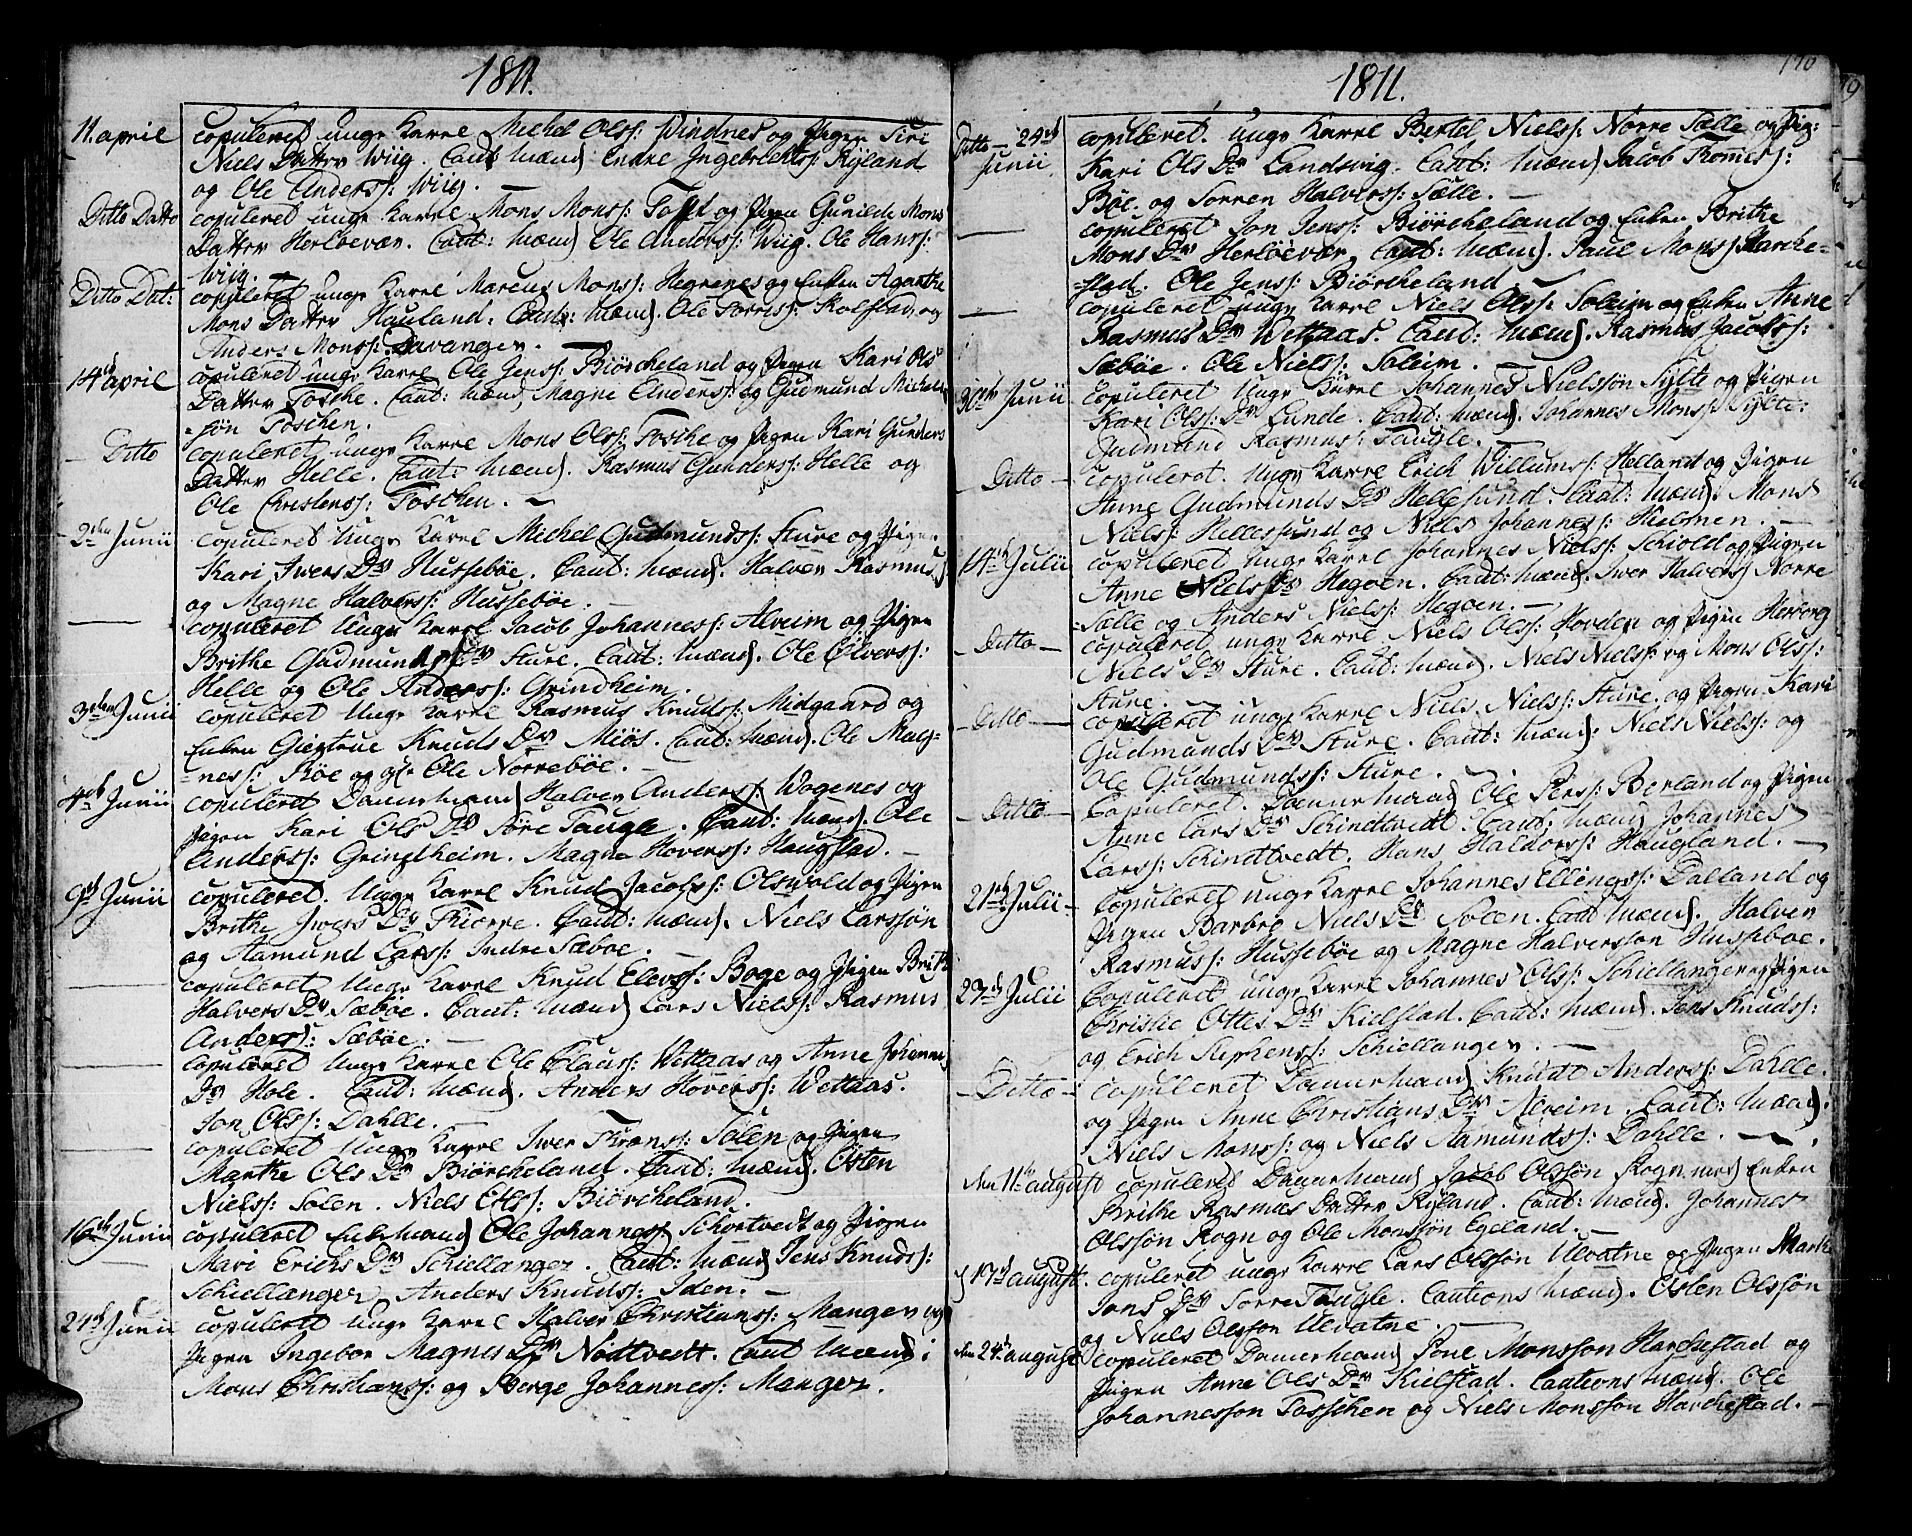 1811.
11. april copuleret unge Karl Michel Olss: Pindnes og Pigen Siri
Niels Datter Wiig. Caut: Mænd: Endre Ingebrechts: Ryland
og Ole Anderss: Wiig.
Ditto Datto copuleret unge Karl Mons Monss: og Pigen Gunilde Mons
Datter Herløevær. Caut: Mænd Ole Anderss: Wiig. Ole Hanss:
Wiig.
Ditto Dat: copuleret unge Karl Marcus Monss: Hegrenes og Enken Agathe
Mons Datter Hauland. Caut: Mænd. Ole Torriss: Rolfstad og
Anders Monss: Davanger.
14d april copuleret unge Karl Ole Jenss: Biörcheland og Pigen Kari Ols
Datter Tosche. Caut: Mænd Magne Anderss: og Gudmund Michel
=søn Toschen.
Ditto copuleret unge Karl Mons Olss: Tosche og Pigen Kari Gunders
Datter Helle. Caut: Mænd. Rasmus Gunderss: Helle og
Ole Christenss: Toschen. —
2den Junii copuleret Unge Karl Michel Gudmundss: Sture og Pigen
Kari Iwers Dr Hussebøe. Caut: Mænd. Halver Rasmus
og Magne Halverss: Hussebøe. —
— copuleret Unge Karl Jacob Johanness: Alveim og Pigen
Brithe Gudmunds Dr Sture. Caut: Mænd. Ole Olverss:
Helle og Ole Anderss: Grindheim.
3den Junii copuleret Unge Karl Rasmus Knudss: Midgaard og
Enken Giertrue Knuds Dr Miøs. Caut: Mænd. Ole Mag-
=ness: Røe og Ole Norrebøe. —
4de Junii copuleret Dannemand Halver Anderss: Wogenes og
Pigen Kari Ols Dr Søre Taugle. Caut: Mænd. Ole
Anderss: Grindheim. Magne Hoverss: Haugstad. —
9d Junii copuleret. Unge Karl Knud Jacobss: Olswold og Pigen
Brithe Iwers Dr Tiorre. Caut: Mænd. Niels Larssøn
og Aamund Larss: Indre Sæbøe. —
— copuleret Unge Karl Knud Elevss: Boge og Pigen Brithe
Halvers Dr Sæbøe. Caut: Mænd Lars Nielss: Rasmus
Anderss: Sæbøe. —
— copuleret Unge Karl Ole Clauss: Wettaas og Anne Johannes
Dr Hole. Caut: Mænd. Anders Hoverss: Wettaas.
Jon Olss: Dahlle.
— copuleret Unge Karl Iwer Franss: Solen og Pigen
Marthe Ols Dr Biörcheland. Caut: Mænd. Østen
Nielss: Solen. Niels Olss: Biörcheland.
16de Junii copuleret Enkemand Ole Johanness Schortvedt og Pigen
Mari Erichs Dr Schiellanger. Caut: Mænd Jens Knudss:
Schiellanger Anders Knudss: Iden. —
24de Junii copuleret unge Karl Halver Christianss: Manger og
Pigen Ingebor Magnes Dr Nødtvedt. Caut Mænd:
Mons Christianss: og Berge Johanness: Manger.
1811.
170
Ditto — 24de Junii copuleret. unge Karl Bertel Nielss: Nørre Sælle og Pig:
Kari Ols Dr Landsvig. Caut: Mænd Jacob Tromess:
Bøe. og Sorren Halverss: Sælle. —
— copuleret Jon Jenss: Biörcheland og Enken Brithe
Mons Dr Herløevær. Caut: Mænd. Paul Monss Harche-
=stad. Ole Jenss: Biörcheland.
— copuleret unge Karl Niels Olss: Soleim og Enken Anne
Rasmus Dr Wettaas. Caut: Mænd. Rasmus Jacobss:
Sæbøe. Ole Nielss: Soleim. —
30te Junii copuleret Unge Karl Johannes Nielssøn Sylte og Pigen
Kari Olss: Dr Lunde. Caut: Mænd. Johannes Monss: Sylte:
Gudmund Rasmuss: Taugle.
— Ditto — copuleret. Unge Karl Erich Willumss: Helland og Pigen
Anne Gudmunds Dr Hellesund. Caut: Mænd. Mons
Nielss: Hellesund og Niels Johanness: Hielmen. —
14de Julii copuleret Unge Karl Johannes Nielss: Schiold og Pigen
Anne Niels Dr Hegøen. Caut: Mænd. Iwer Halverss Norre
=Sælle og Anders Nielss: Hegøen. —
— Ditto — copuleret unge Karl Niels Olss: Hovden og Pigen Herborg
Niels Dr Sture. Caut: Mænd. Niels Nielss: og Mons Olss:
Sture. —
— Ditto — copuleret unge Karl Niels Nielss: Sture. og Pigen Kari
Gudmunds Dr Sture. Caut: Mænd. Niels Nielss: og
Ole Gudmundss: Sture. —
— Ditto — Copuleret. Dannemand Ole Perss: Berland og Pigen
Anne Lars Dr Schindtvedt. Caut: Mænd Johannes
Larss: Schindtvedt. Hans Haldorss: Haugland. —
21de Julii — copuleret unge Karl Johannes Ellingss: Dalland og
Pigen Barbre Niels Dr Solen. Caut Mænd. Halver
Rasmuss: Hussebøe og Magne Halverssøn Hussebøe.
27de Julii Copuleret unge Karl Johannes Olss: Schiellanger og Pigen
Christie Ottes Dr Kielstad. Caut: Mænd. Jens Knudss:
og Erich Stephenss: Schiellanger. —
— Ditto — copulleret Dannemand Knudt Anderss: Dahlle.
og Pigen Anne Christians Dr Alveim. Caut: Mænd.
Niels Monss: og Niels Aamundss: Dahlle. —
den 11te august copuleret Dannemand Jacob Olssøn Rogn med Enken
Brithe Rasmus Datter Ryland. Caut: Mænd. Johannes
Olssøn Rogn og Ole Monssøn Egeland. —
d 17de august. copuleret unge Karl Lars Olssøn Ulvatne og Pigen Marthe
Jons Dr Sorre Taugle. Cautions Mænd. Østen Olssøn
og Niels Olssøn Ulvatne. —
den 24d august copuleret Dannemand Pone Monssøn Harchestad og
Pigen Anne Ols Dr Kielstad. Cautions Mænd. Ole
Johannessøn Tosschen og Niels Monssøn Harchestad. —